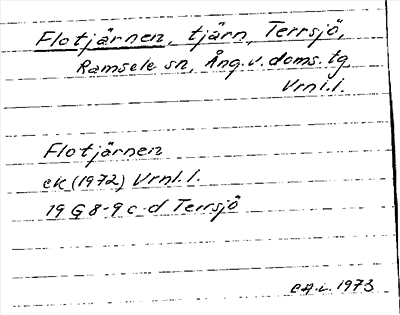 Flotjärnen, tjärn, Terrsjö,
Ramsele sn, Ång. v. doms. tg
Vrnl.l.
Flotjärnen
ek (1972) Vrnl.l.
19 G 8-9 c-d Terrsjö
1973